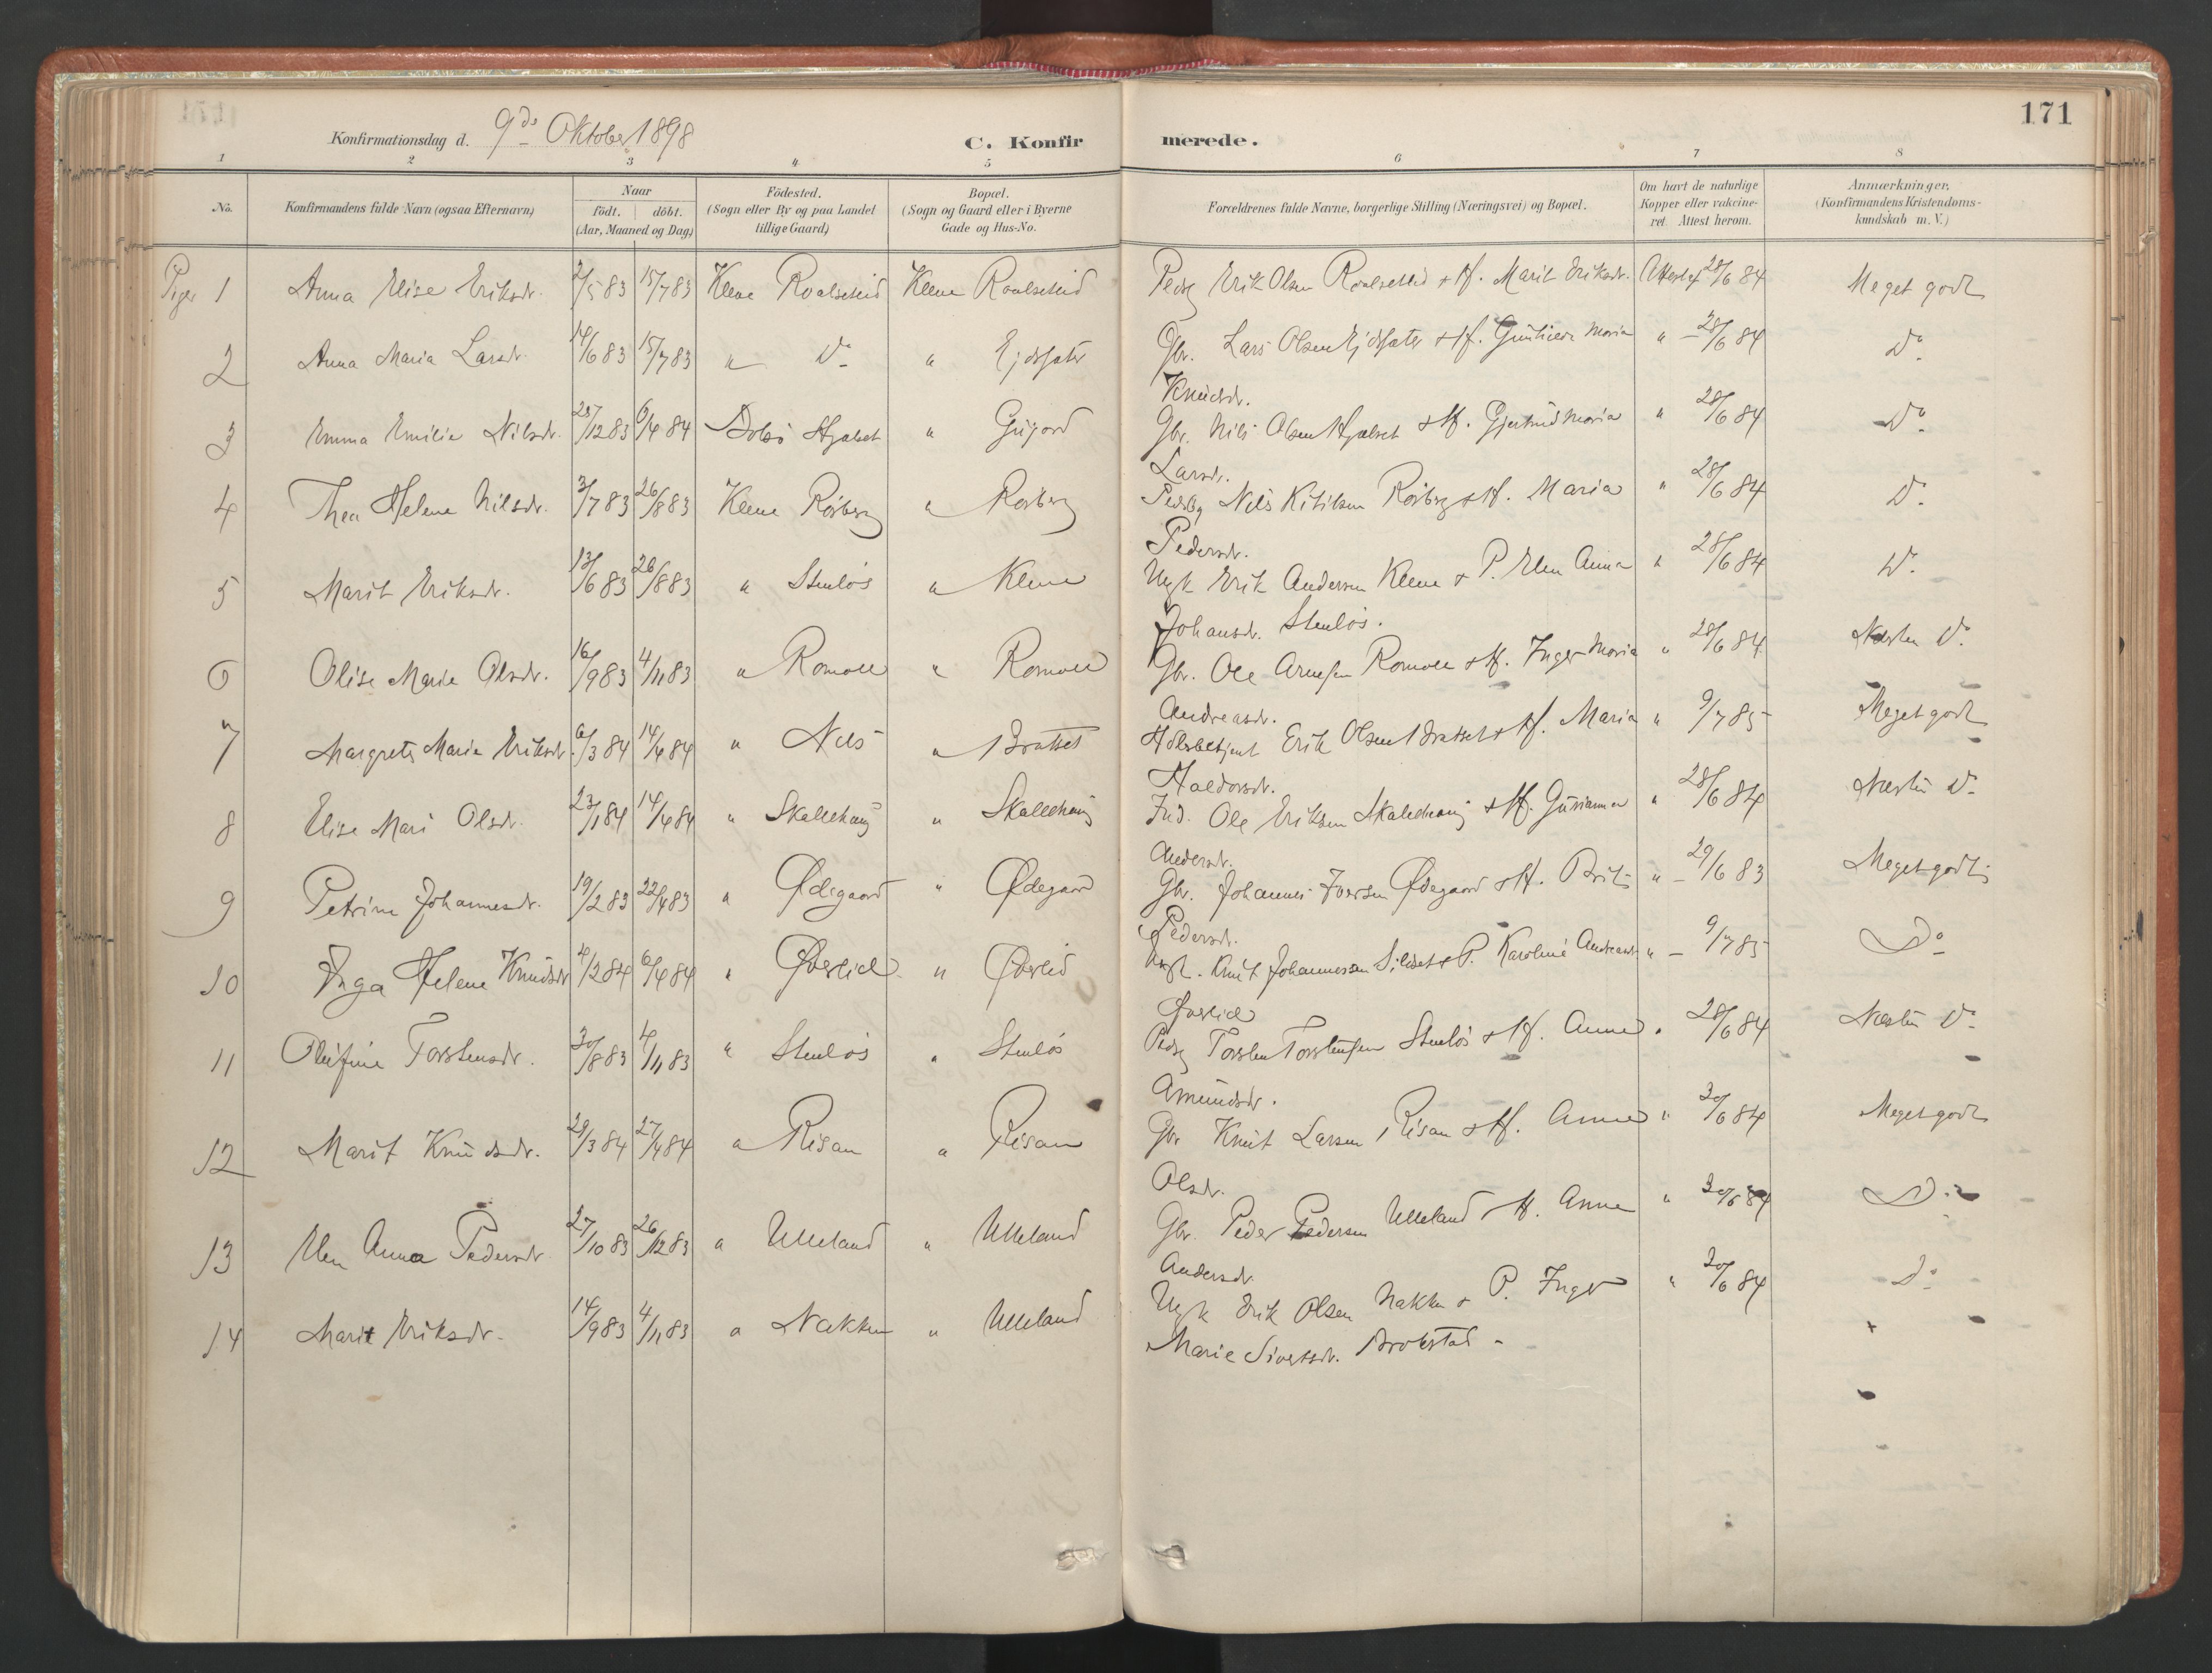 171
Konfirmationsdag d. 9de Oktober 1898
C. Konfirmerede.
1 2 3 4 5 6 7 8
No.
Konfirmandens fulde Navn (ogsaa Efternavn)
Naar
födt. döbt.
(Aar, Maaned og Dag)
Födested.
(Sogn eller By og paa Landet
tillige Gaard)
Bopæl.
(Sogn og Gaard eller i Byerne
Gade og Hus-No.
Forældrenes fulde Navne, borgerlige Stilling (Næringsvei) og Bopæl.
Om havt de naturlige
Kopper eller vakcine-
ret. Attest herom.
Anmærkninger.
(Konfirmandens Kristendoms-
kundskab m. V.)
Piger 1 Anna Elise Eriksdr. 2/5 83 15/7 83 Kleve Roalsetlid Kleve Roalsetlid Pedsg Erik Olsen Roalsetlid & H. Marit Eriksdr. Attest af 28/6 84 Meget godt
2 Anna Maria Larsdr. 14/6 83 15/7 83 " Do " Ejdssæter Gbr. Lars Olsen Ejdssæter & H. Maria " - 28/6 84 Do
Knudsdr.
3 Emma Emilie Nilsdr. 28/12 83 6/4 84 Bolsö Hjelset " Gujord Gbr. Nils Olsen Hjelset & H. Gjertrud Maria " 28/6 84 Do
Larsdr.
4 Thea Helene Nilsdr. 3/7 83 26/8 83 Kleve Rösberg " Rösberg Nils Kitilsen Rösberg & H. Maria " 28/6 84 Do
Pedersdr.
5 Marit Eriksdr. 13/6 83 26/8 83 " Stenlös " Kleve Ungk Erik Andersen Kleve & P. Elen Anna " 28/6 84 Do
Johansdr. Stenlös.
6 Olise Marie Olsdr. 16/9 83 4/11 83 " Romoll " Romoll Gbr. Ole Arnesen Romoll & H. Inger Maria " 28/6 84 Næsten Do
Andreasdr.
7 Margrete Marie Eriksdr. 6/3 84 14/4 84 " Nes " Bratset Erik Olsen Bratset & H. Maria " 9/7 85 Meget godt
Haldorsdr.
8 Elise Mari Olsdr. 23/1 84 14/4 84 " Skallehaug " Skallehaug Ind. Ole Eriksen Skallehaug & H. Gurianna " 28/6 84 Næsten Do
Andersdr.
9 Petrine Johannesdr. 19/2 83 22/4 83 " Ødegaard " Ødegaard Gbr. Johannes Iversen Ødegaard & H. Brit " - 29/6 83 Meget godt
Pedersdr.
10 Inga Helene Knudsdr 4/2 84 6/4 84 " Øverlid " Øverlid Ungk. Knut Johannessen Silset & P. Karoline Andreasdr " - 9/7 85 Do
Øverlid
11 Olufine Torstensdr. 30/8 83 4/11 83 " Stenlös " Stenlös Pedsg Torsten Torstensen Stenlös & H. Anne " 28/6 84 Næsten Do
Amundsdr.
12 Marit Knudsdr. 29/3 84 27/4 84 " Risan " Risan Gbr Knut Larsen Risan & H. Anne " 30/6 84 Meget godt
Olsdr.
13 Elen Anna Pedersdr. 27/10 83 26/12 83 " Ulleland " Ulleland Gbr. Peder Pedersen Ulleland & H. Anne " 30/6 84 Do
Andersdr.
14 Marit Eriksdr. 14/9 83 4/11 83 " Nakken " Ulleland Ungk Erik Olsen Nakken & P. Inger " 30/6 84 Do
Marie Sivertsdr. Brokstad -